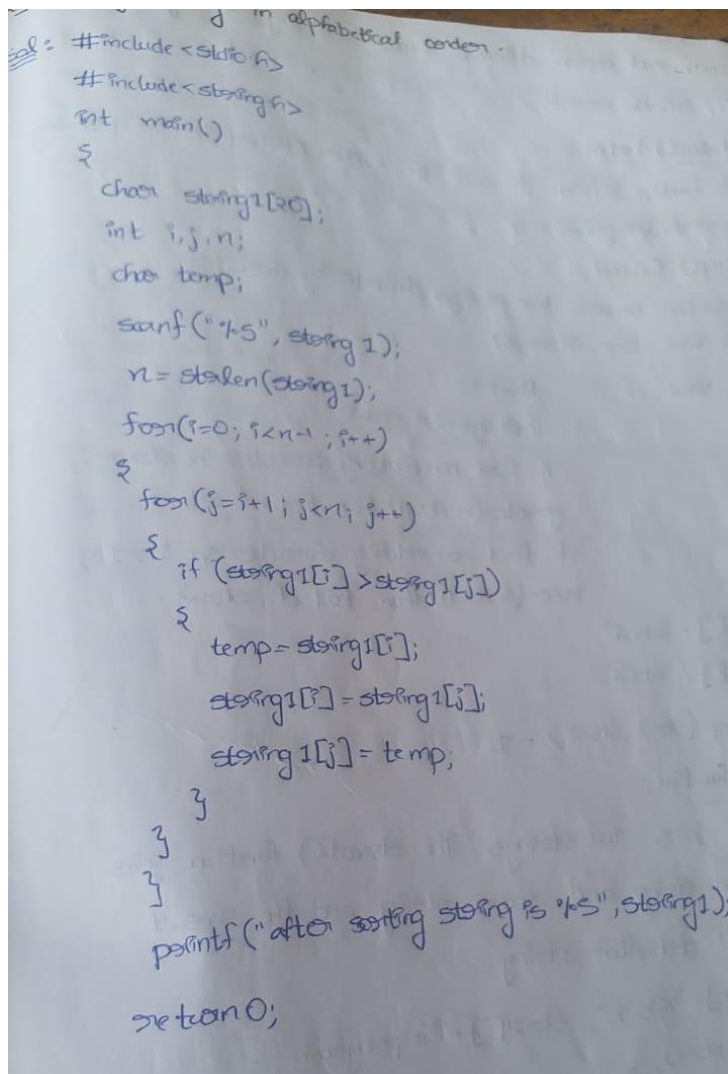 in alphabetical order.
sol: #include<stdio.h>
#include<string.h>
int main()
{
char string1[20];
int i,j,n;
char temp;
scanf("%s", string1);
n=strlen(string1);
for(i=0; i<n-1; i++)
{
for(j=i+1; j<n; j++)
{
if (string1[i]>string1[j])
{
temp=string1[i];
string1[i]=string1[j];
string1[j]=temp;
}
}
}
printf("after sorting string is %s", string1);
return 0;